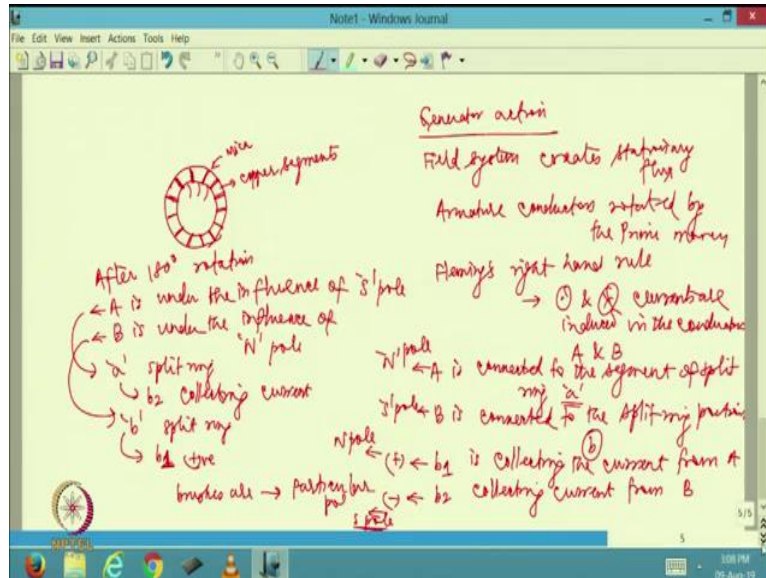 Note1 - Windows Journal
File Edit View Insert Actions Tools Help
mica
copper segments
After 180° rotation
A is under the influence of 's' pole
B is under the influence of
'N' pole
'a' split ring
b2 collecting current
'b' split ring
b1 +ve
brushes are → particular
pol
s pole
Generator action
Field system creates stationary
flux
Armature conductors rotated by
the Prime mover
Fleming's right hand rule
→ ⊙ & ⊗ currents are
induced in the conductors
A & B
'N' pole ← A is connected to the segment of split
ring 'a'
's' pole ← B is connected to the split ring portion
b
N pole ← (+) ← b1 is collecting the current from A
(-) ← b2 collecting current from B
NPTEL
5/5
5
3:08 PM
09-Aug-19